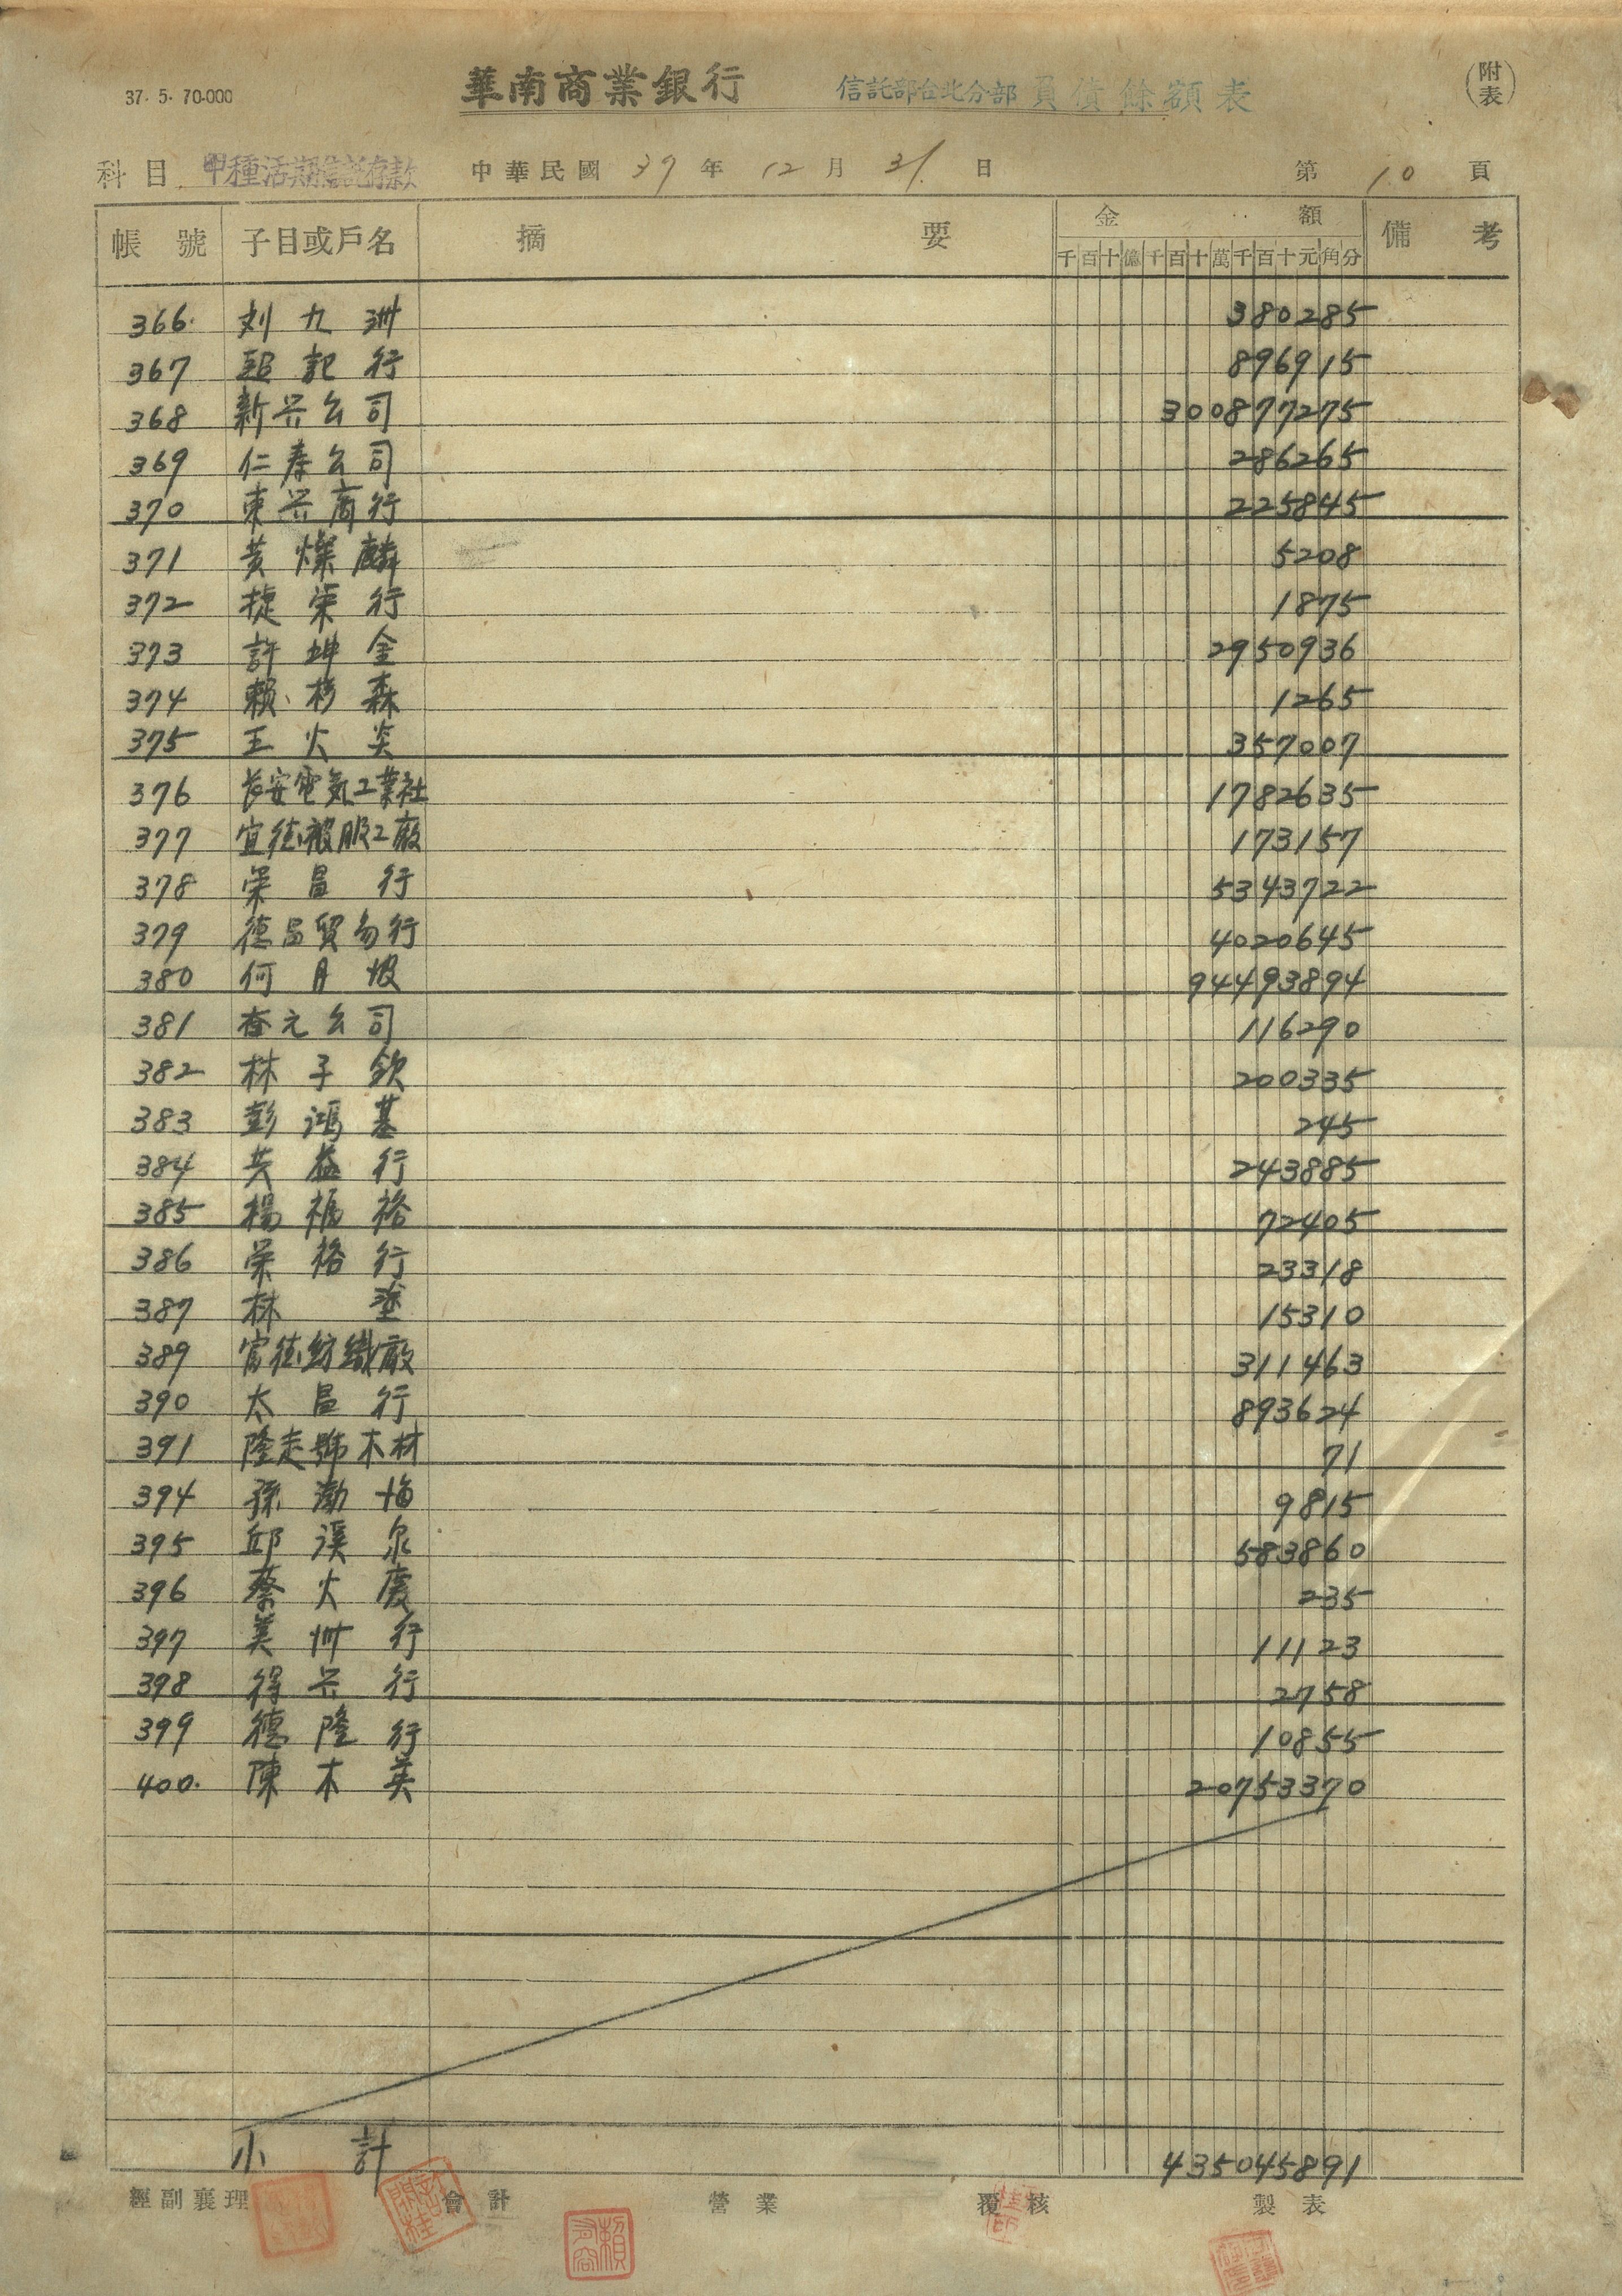 37. 5. 70.000
華南商業銀行 信託部台北分部 負債餘額表 (附表)
科目 甲種活期信託存款 中華民國 39 年 12 月 31 日 第 10 頁
帳號 子目或戶名 摘要 金額 備考
千百十億千百十萬千百十元角分
366. 刘九洲 380285
367 記行 896915
368 新兴公司 300877275
369 仁寿公司 286265
370 東兴商行 225845
371 黃燦麟 5208
372 捷栄行 1875
373 許坤金 2950936
374 賴杉森 1265
375 王火炎 357007
376 長安電気工業社 1782635
377 宜德被服工廠 173157
378 栄昌行 5343722
379 德昌貿易行 4020645
380 何月 94493894
381 元公司 116290
382 林子欽 200335
383 彭鴻基 245
384 共益行 243885
385 楊裕 72405
386 栄裕行 23318
387 林塗 15310
389 德紡織廠 311463
390 太昌行 893624
391 隆號木材 71
394 孫渤海 9815
395 邱溪泉 583860
396 蔡火慶 235
397 美州行 11123
398 得兴行 2758
399 德隆行 10855
400. 陳木英 20753370
小計 435045891
經副襄理 會計 營業 覆核 製表